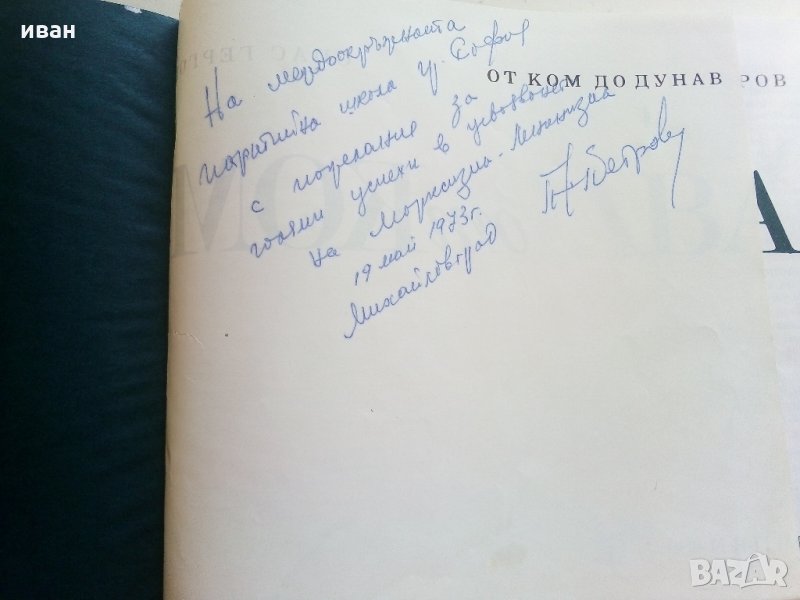 иван
ОТ КОМ ДО ДУНАВ
РОВ
На междуокръжната
партийна школа гр. София
с пожелание за
големи успехи в усвояването
на Марксизма-Ленинизма
19 май 1973 г.
Михайловград
Петров
BAZAR